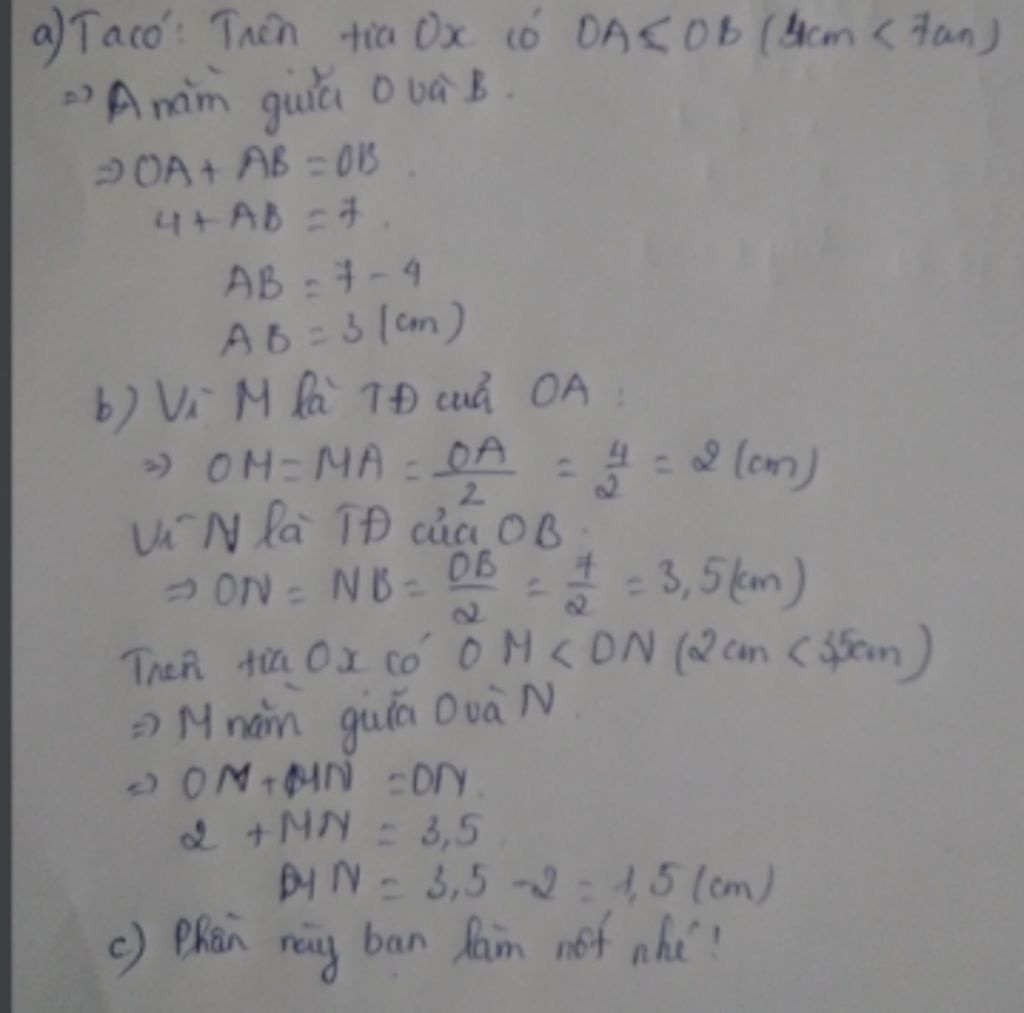 a) Ta có: Trên tia Ox có OA < OB (4cm < 7cm)
=> A nằm giữa O và B.
=> OA + AB = OB.
4 + AB = 7.
AB = 7 - 4
AB = 3 (cm)
b) Vì M là TĐ của OA:
=> OM = MA = OA/2 = 4/2 = 2 (cm)
Vì N là TĐ của OB:
=> ON = NB = OB/2 = 7/2 = 3,5 (cm)
Trên tia Ox có OM < ON (2cm < 3,5cm)
=> M nằm giữa O và N.
=> OM + MN = ON.
2 + MN = 3,5
MN = 3,5 - 2 = 1,5 (cm)
c) Phần này bạn làm nốt nhé!